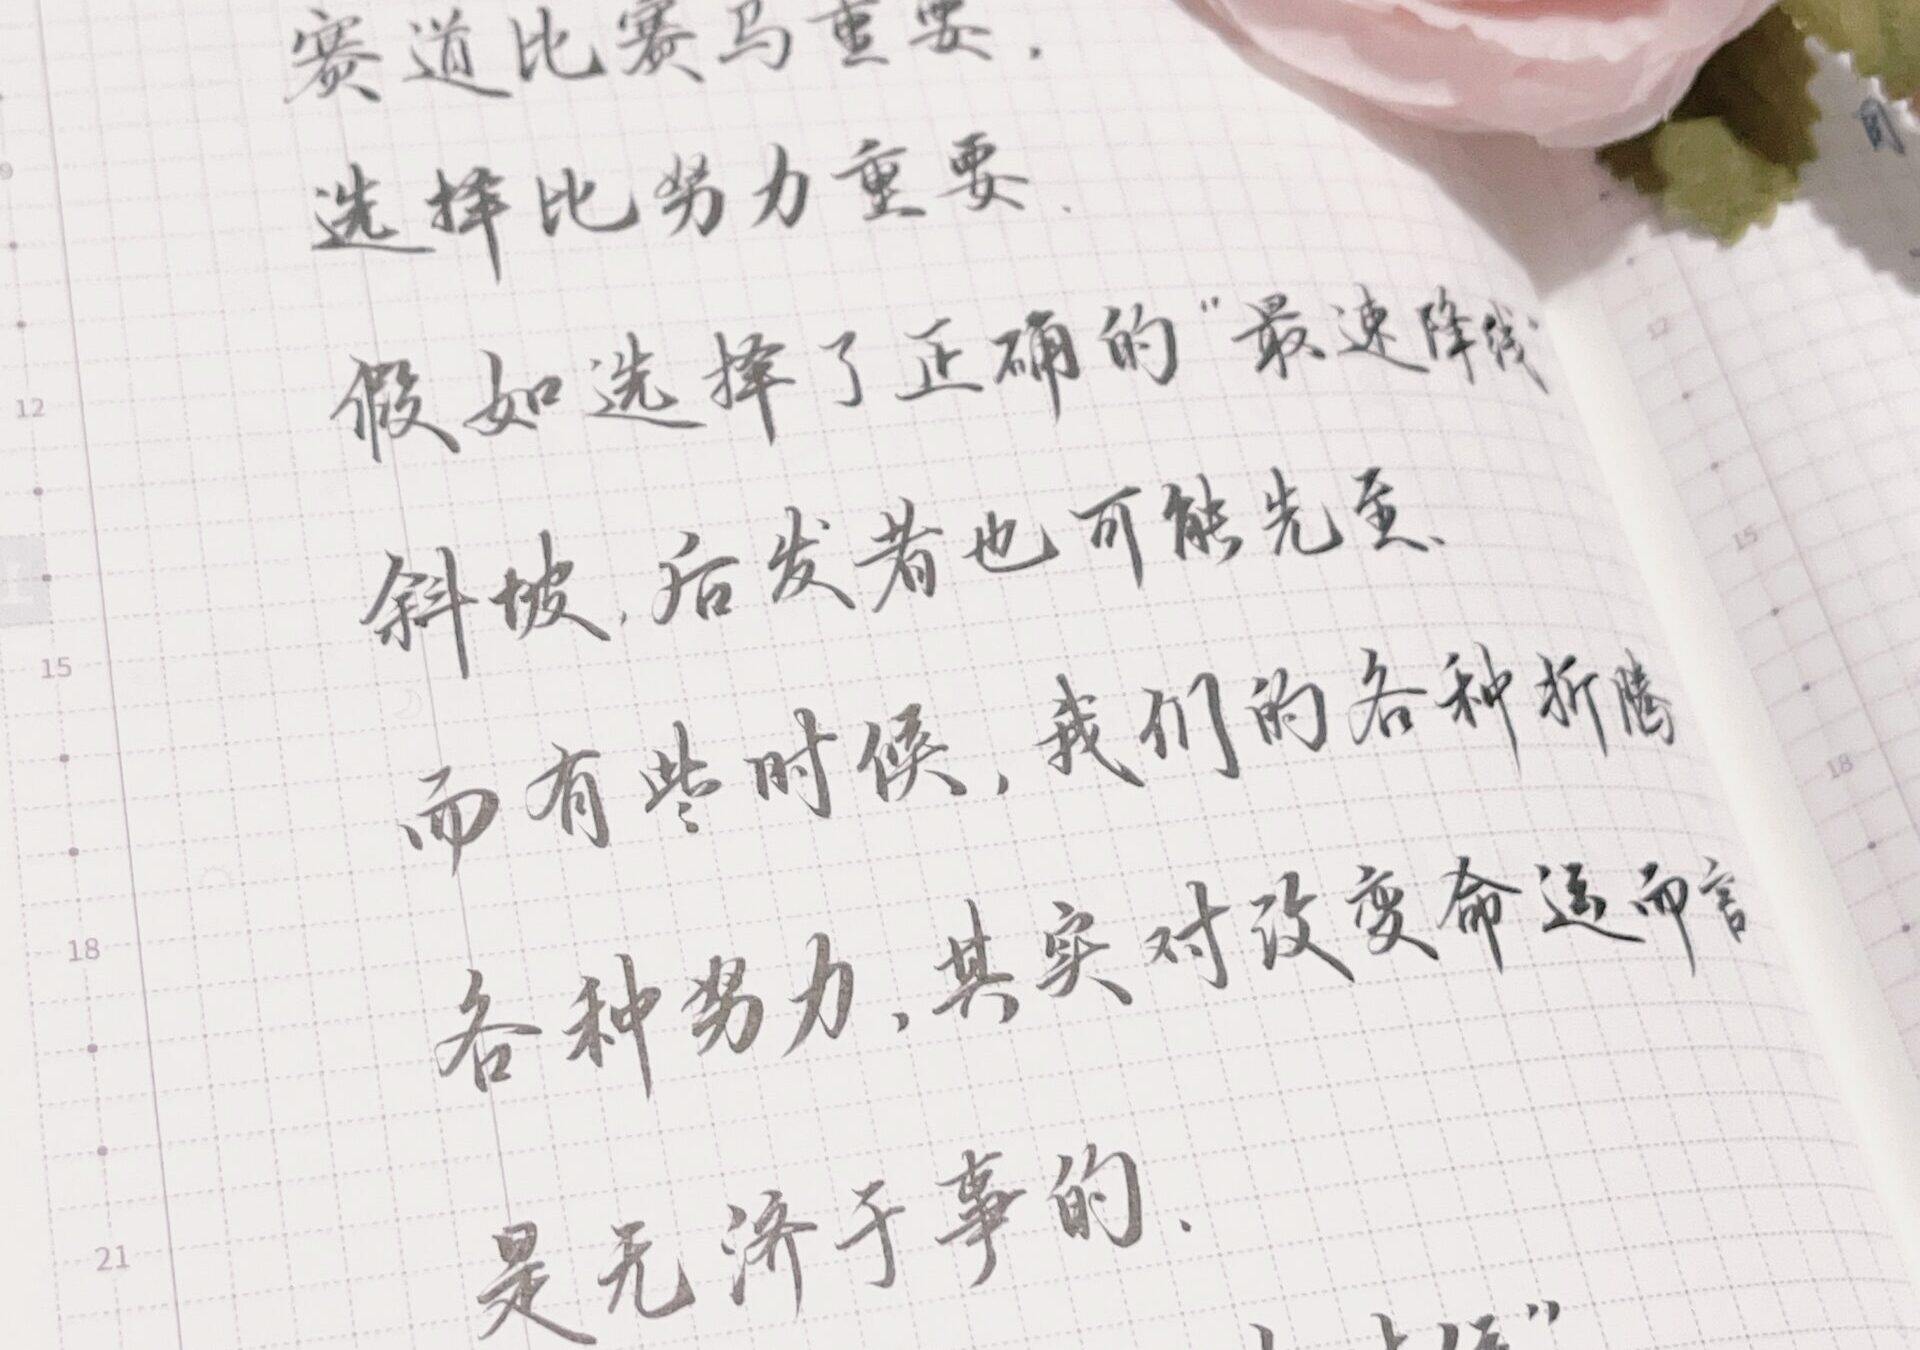 赛道比赛马重要.
选择比努力重要.
假如选择了正确的“最速降线”
斜坡,后发者也可能先至.
而有些时候,我们的各种折腾
各种努力,其实对改变命运而言
是无济于事的.
12
15
18
21
12
15
18